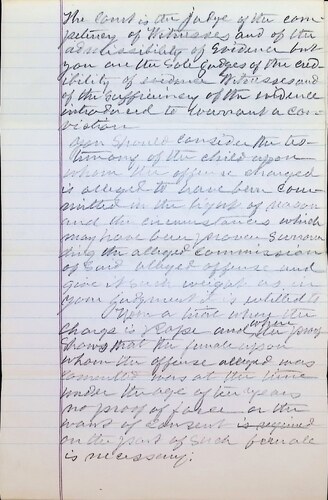 The Court is the Judge of the com-
petency of Witnesses and of the
admissibility of Evidence but
you are the Sole Judges of the cred-
ibility of evidence Witnesses and
of the Sufficiency of the evidence
introduced to warrant a con-
viction
You Should Consider the tes-
timony of the child upon
whom the offense charged
is alleged to have been com-
mitted in the light of reason
and the circumstances which
may have been proven Surroun-
ding the alleged Commission
of Said alleged offense and
give it such weight as in
your Judgment it is entitled to
Upon a trial when the
charge is Rape and where the proof
Shows that the female upon
whom the offense alleged was
committed was at the time
under the age of ten years
no proof of force or the
want of Consent is required
on the part of Such female
is necessary.